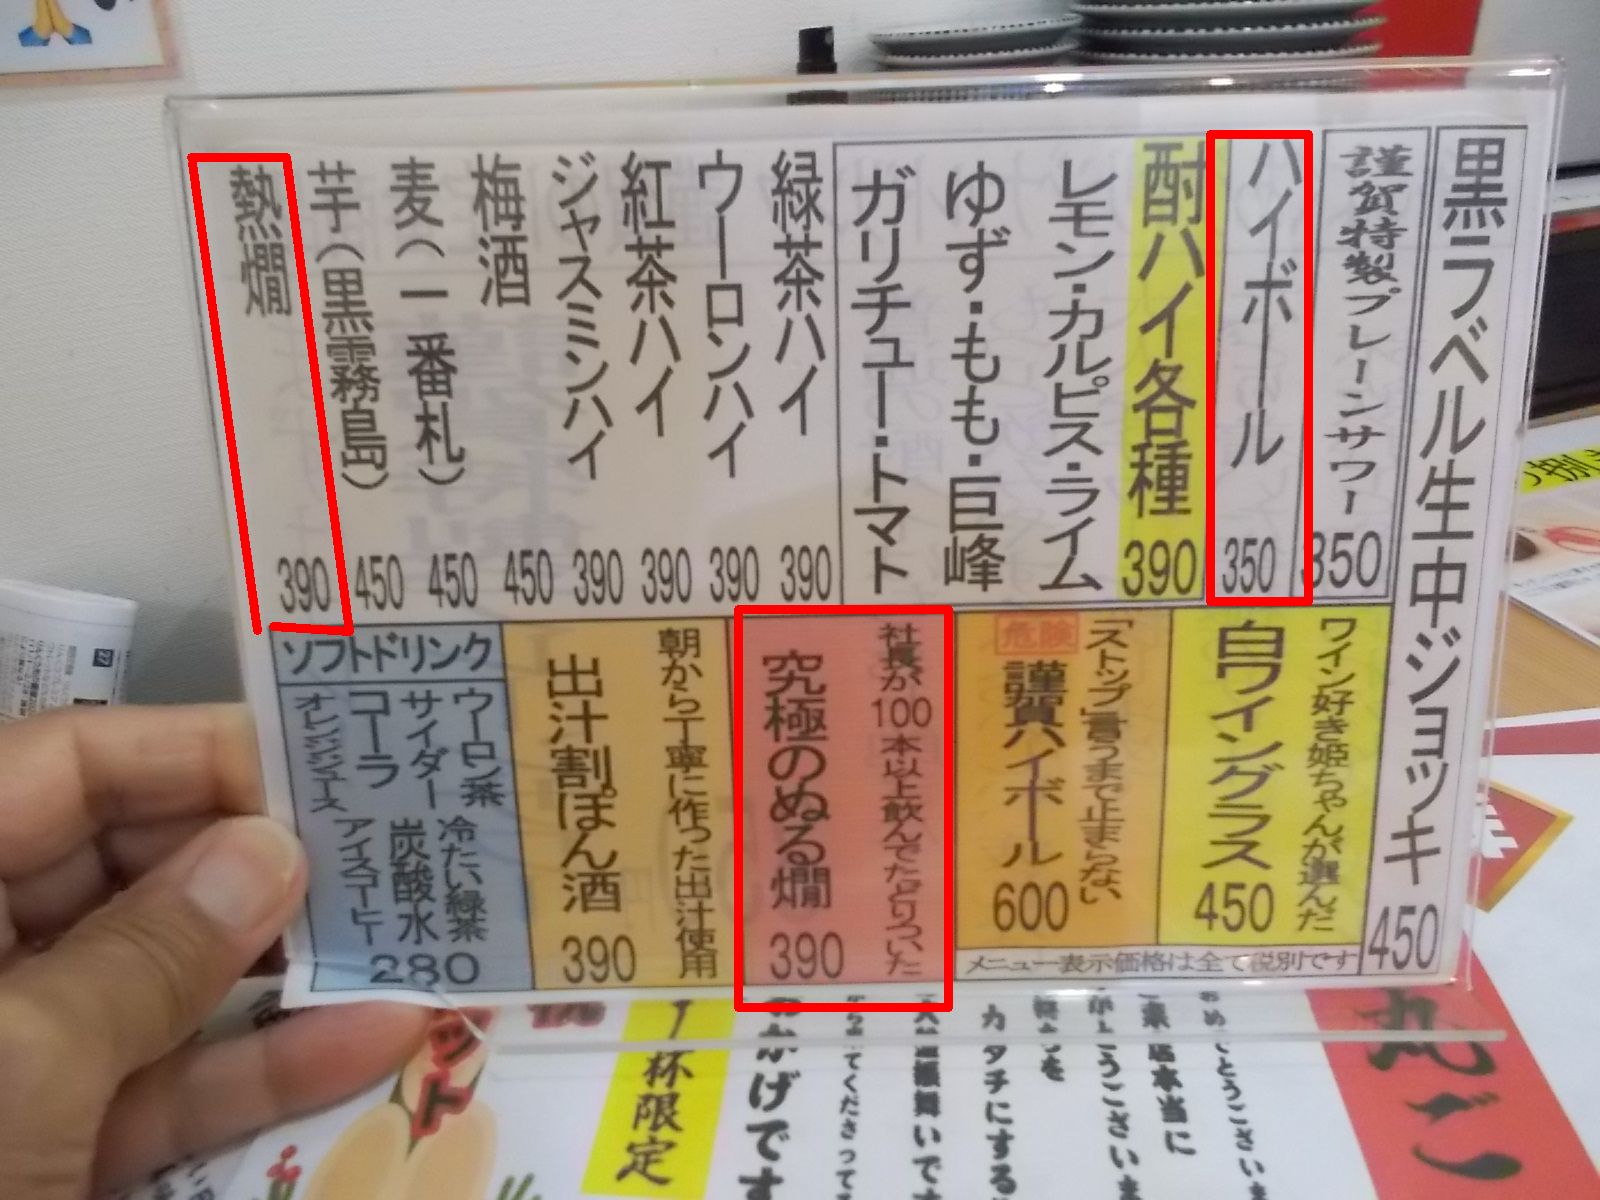 黒ラベル生中ジョッキ 450
謹賀特製プレーンサワー 350
ハイボール 350
酎ハイ各種 390
レモン・カルピス・ライム
ゆず・もも・巨峰
ガリチュー・トマト
緑茶ハイ 390
ウーロンハイ 390
紅茶ハイ 390
ジャスミンハイ 390
梅酒 450
麦(一番札) 450
芋(黒霧島) 450
熱燗 390
ワイン好き姫ちゃんが選んだ
白ワイングラス 450
「ストップ」言うまで止まらない
危険
謹賀ハイボール 600
メニュー表示価格は全て税別です
社長が100本以上飲んでたどりついた
究極のぬる燗 390
朝から丁寧に作った出汁使用
出汁割ぽん酒 390
ソフトドリンク
ウーロン茶 冷たい緑茶
サイダー 炭酸水
コーラ アイスコーヒー
オレンジジュース
280
丸ご
おめでとうございま
ご来店本当に
がとうございま
カタチにする
てください
おかげです
杯限定
ット